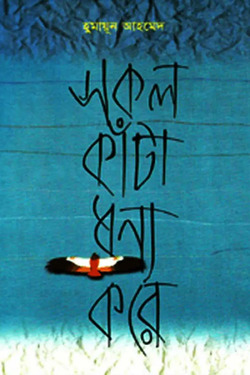 হুমায়ূন আহমেদ
সকল
কাঁটা
ধন্য
করে